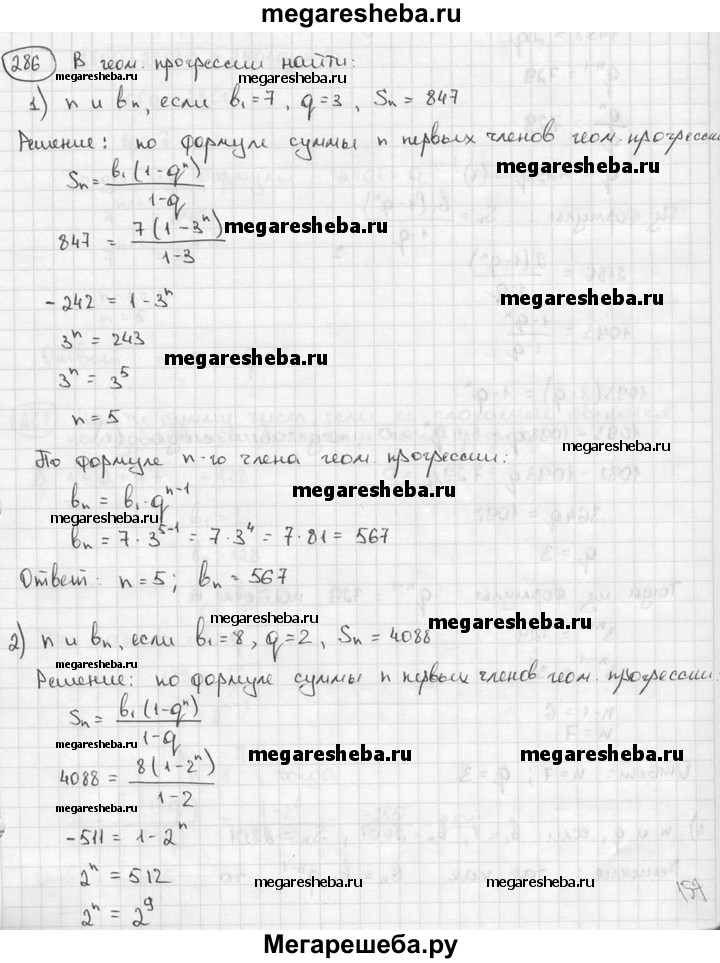 megaresheba.ru
286 В геом. прогрессии найти:
megaresheba.ru megaresheba.ru
1) n и bn, если b₁=7, q=3, Sn = 847
Решение: по формуле суммы n первых членов геом. прогрессии
megaresheba.ru
Sn = b₁(1-qⁿ)/1-q
847 = 7(1-3ⁿ)/1-3
megaresheba.ru
-242 = 1-3ⁿ
megaresheba.ru
3ⁿ = 243
megaresheba.ru
3ⁿ = 3⁵
n = 5
megaresheba.ru
По формуле n-го члена геом. прогрессии:
bn = b₁·qⁿ⁻¹
megaresheba.ru
megaresheba.ru
bn = 7·3⁵⁻¹ = 7·3⁴ = 7·81 = 567
Ответ: n=5; bn = 567
megaresheba.ru
megaresheba.ru
2) n и bn, если b₁=8, q=2, Sn = 4088
megaresheba.ru
Решение: по формуле суммы n первых членов геом. прогрессии:
Sn = b₁(1-qⁿ)/1-q
megaresheba.ru
megaresheba.ru megaresheba.ru
4088 = 8(1-2ⁿ)/1-2
megaresheba.ru
-511 = 1-2ⁿ
2ⁿ = 512
megaresheba.ru megaresheba.ru
2ⁿ = 2⁹
159
Мегарешеба.ру